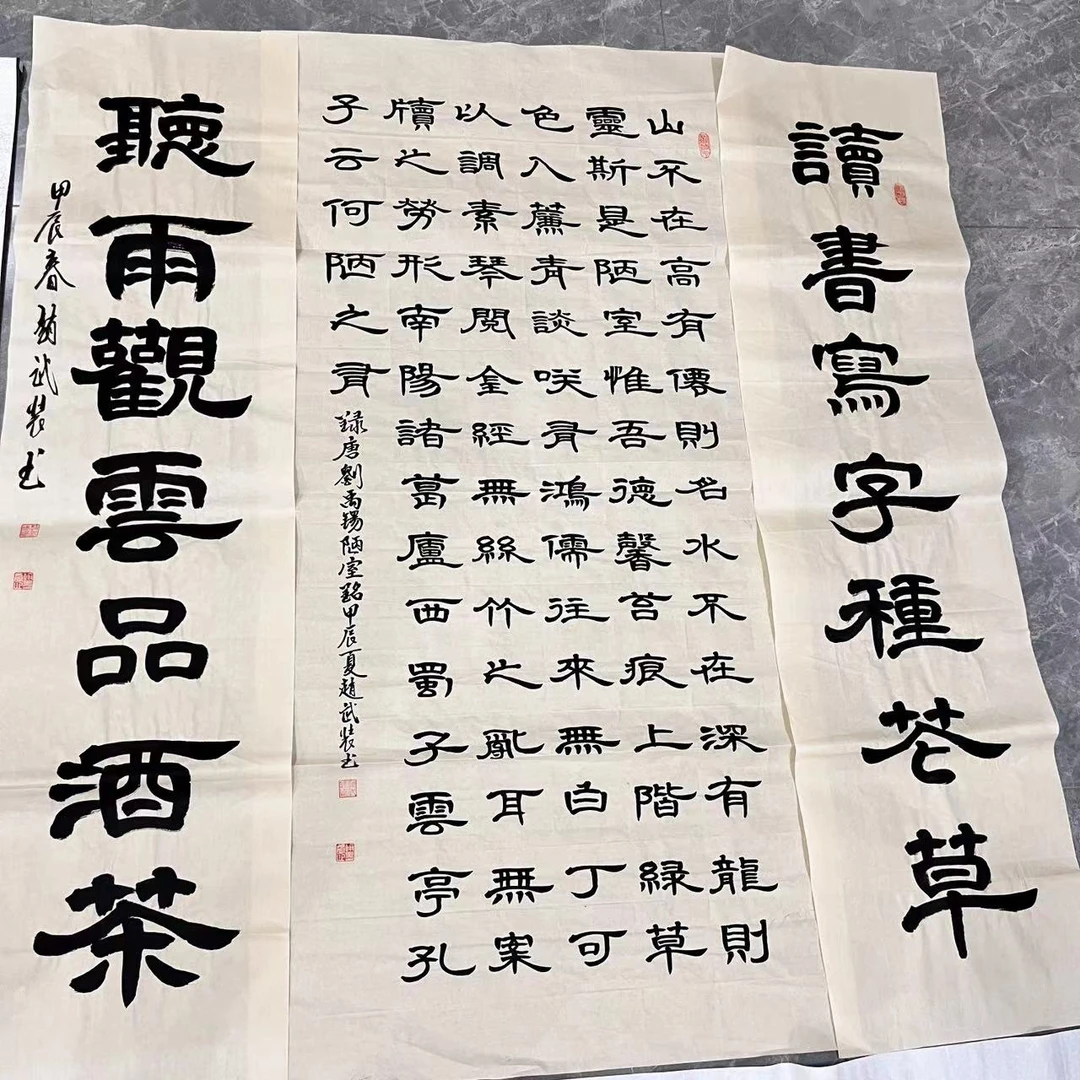 讀書寫字種花草
山不在高有僊則名水不在深有龍則
靈斯是陋室惟吾德馨苔痕上階緑草
色入簾青談咲有鴻儒往來無白丁可
以調素琴閱金經無絲竹之亂耳無案
牘之勞形南陽諸葛廬西蜀子雲亭孔
子云何陋之有
録唐劉禹锡陋室銘甲辰夏趙武裝书
聽雨觀雲品酒茶
甲辰春趙武裝书